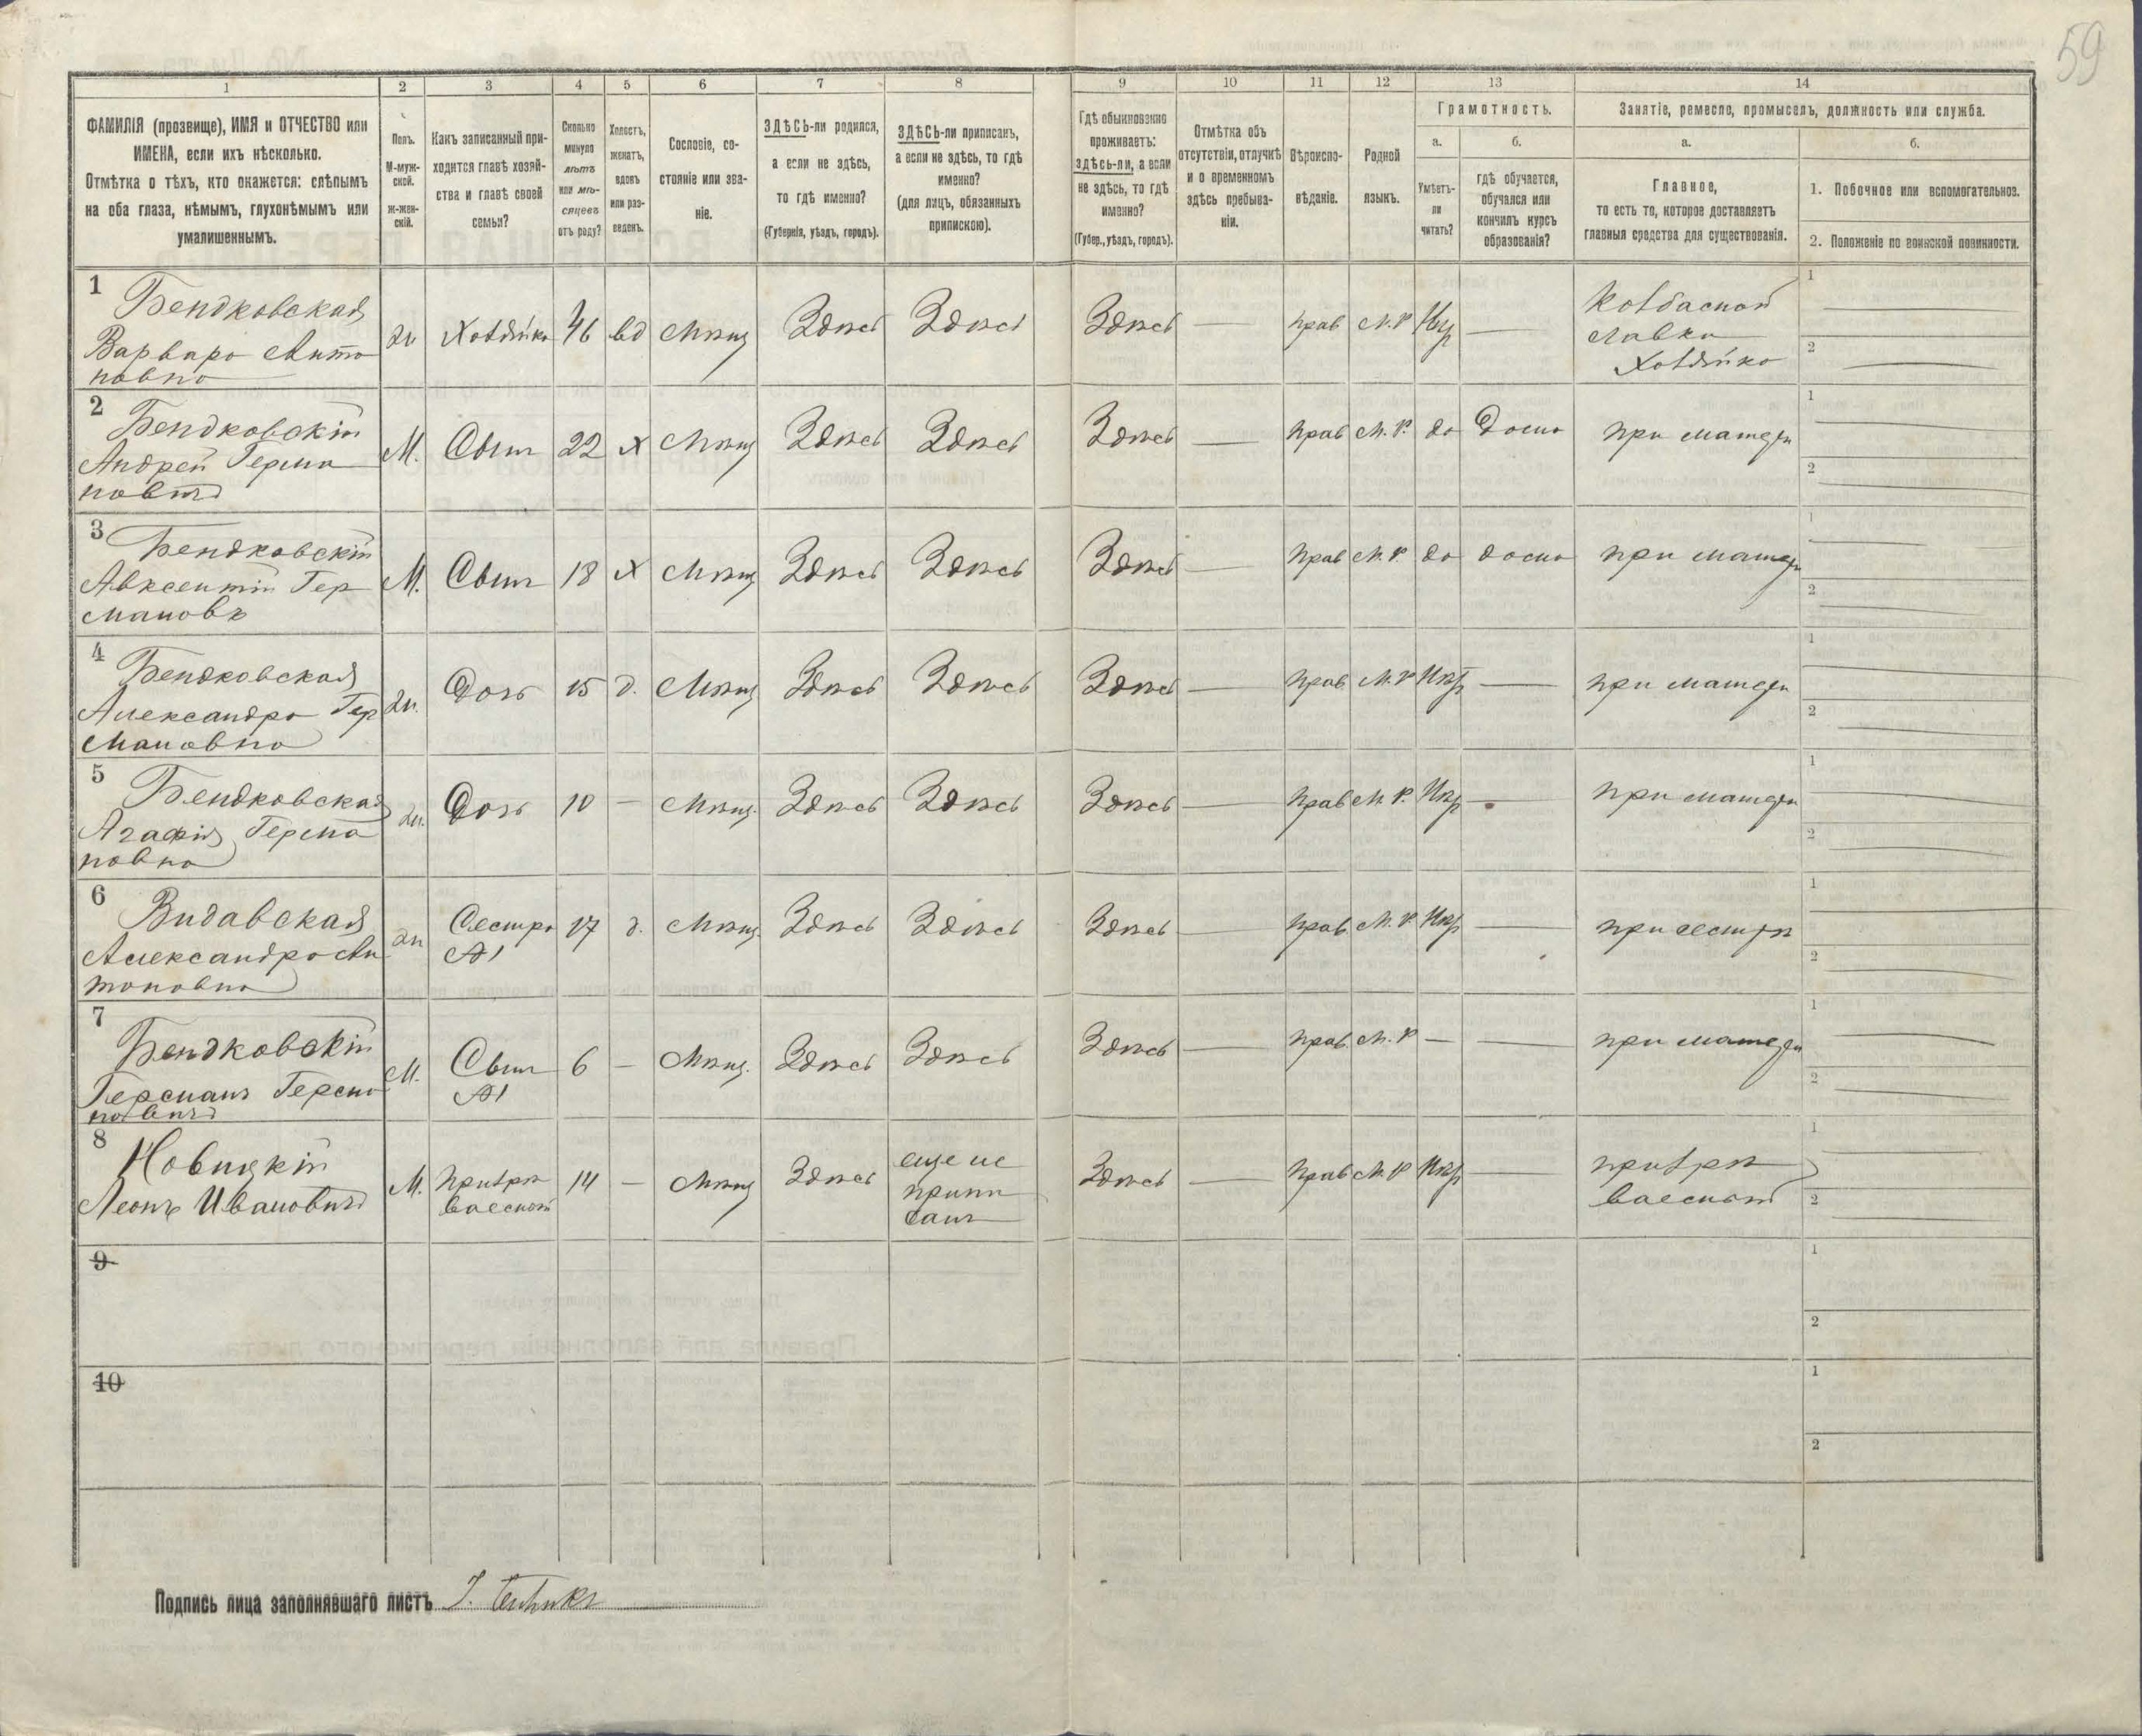 59
1 2 3 4 5 6 7 8 9 10 11 12 13 14
ФАМИЛІЯ (прозвище), ИМЯ и ОТЧЕСТВО или
ИМЕНА, если ихъ нѣсколько.
Отмѣтка о тѣхъ, кто окажется: слѣпымъ
на оба глаза, нѣмымъ, глухонѣмымъ или
умалишеннымъ.
Полъ.
М-муж-
ской.
Ж-жен-
скій.
Какъ записанный при-
ходится главѣ хозяй-
ства и главѣ своей
семьи?
Сколько
минуло
лѣтъ
или мѣ-
сяцевъ
отъ роду?
Холостъ,
женатъ,
вдовъ
или раз-
веденъ.
Сословіе, со-
стояніе или зва-
ніе.
ЗДѢСЬ-ли родился,
а если не здѣсь,
то гдѣ именно?
(Губернія, уѣздъ, городъ).
ЗДѢСЬ-ли приписанъ,
а если не здѣсь, то гдѣ
именно?
(для лицъ, обязанныхъ
припискою).
Гдѣ обыкновенно
проживаетъ:
здѣсь-ли, а если
не здѣсь, то гдѣ
именно?
(Губер., уѣздъ, городъ).
Отмѣтка объ
отсутствіи, отлучкѣ
и о временномъ
здѣсь пребыва-
ніи.
Вѣроиспо-
вѣданіе.
Родной
языкъ.
Грамотность.
а.
Умѣетъ-
ли
читать?
б.
гдѣ обучается,
обучался или
кончилъ курсъ
образованія?
Занятіе, ремесло, промыселъ, должность или служба.
а.
Главное,
то есть то, которое доставляетъ
главныя средства для существованія.
б.
1. Побочное или вспомогательное.
2. Положеніе по воинской повинности.
1 Бендковская
Варвара Анто
новна
Хозяйка 46 вд Мѣщ Здѣсь Здѣсь Здѣсь — прав М.Р. —
Колбасной
лавки
Хозяйка
1
2
2 Бендковскій
Андрей Герма
новичъ
М. Сынъ 22 Х Мѣщ Здѣсь Здѣсь Здѣсь — прав М.Р. да дома при матери
1
2
3 Бендковскій
Авксентій Гер
мановъ
М. Сынъ 18 Х Мѣщ Здѣсь Здѣсь Здѣсь — прав М.Р. да дома при матери
1
2
4 Бендковская
Александра Гер
мановна
Ж. Дочь 15 д. Мѣщ Здѣсь Здѣсь Здѣсь — прав М.Р. — при матери
1
2
5 Бендковская
Агафія Герма
новна
Ж. Дочь 10 — Мѣщ. Здѣсь Здѣсь Здѣсь — прав М.Р. — при матери
1
2
6 Видавская
Александра Ан
тоновна
Ж Сестра 17 д. Мѣщ. Здѣсь Здѣсь Здѣсь — прав М.Р. — при сестрѣ
1
2
7 Бендковскій
Германъ Герма
новичъ
М. Сынъ 6 — Мѣщ. Здѣсь Здѣсь Здѣсь — прав М.Р — — при матери
1
2
8 Новицкій
Леонъ Ивановичъ
М. призрѣ
ваемой 14 — Мѣщ Здѣсь
еще не
припи
санъ
Здѣсь — прав М.Р —
призрѣ
ваемой
1
2
9
1
2
10
1
2
Подпись лица заполнявшаго листъ